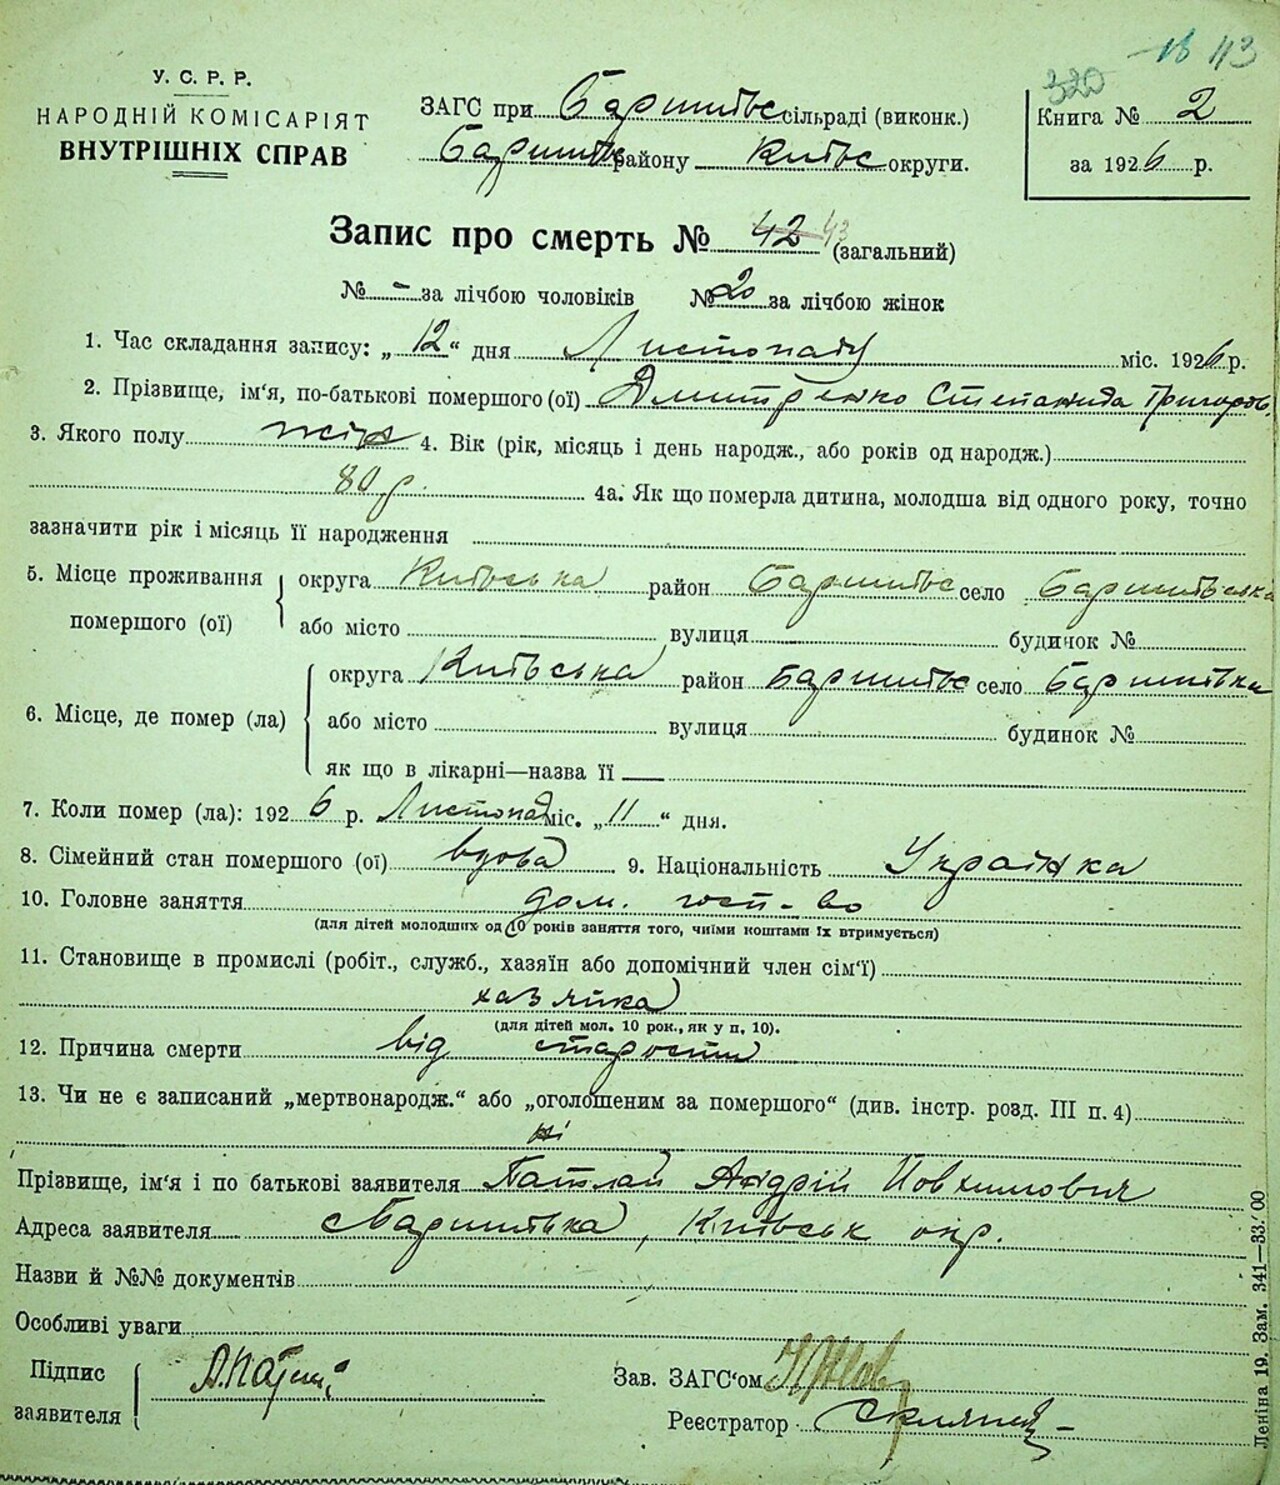 18 113
320
У. С. Р. Р.
НАРОДНІЙ КОМІСАРІЯТ
ВНУТРІШНІХ СПРАВ
ЗАГС при Баришівс сільраді (виконк.)
Баришівс району Київс округи.
Книга № 2
за 1926 р.
Запис про смерть № 42 43 (загальний)
№ - за лічбою чоловіків № 20 за лічбою жінок
1. Час складання запису: „12“ дня Листопаду міс. 1926 р.
2. Прізвище, ім‘я, по-батькові помершого (ої) Дмитренко Степанида Григоров.
3. Якого полу жін 4. Вік (рік, місяць і день народж., або років од народж.)
80 р. 4а. Як що померла дитина, молодша від одного року, точно
зазначити рік і місяць її народження
5. Місце проживання помершого (ої) округа Київська район Баришівс село Баришівська
або місто вулиця будинок №
6. Місце, де помер (ла) округа Київська район Баришівс село Баришівка
або місто вулиця будинок №
як що в лікарні—назва її
7. Коли помер (ла): 1926 р. Листопад міс. „11“ дня.
8. Сімейний стан помершого (ої) вдова 9. Національність Українка
10. Головне заняття дом. госп-во
(для дітей молодших од 10 років заняття того, чиїми коштами їх втримується)
11. Становище в промислі (робіт., служб., хазяїн або допомічний член сім‘ї)
хазяйка
(для дітей мол. 10 рок., як у п. 10).
12. Причина смерти від старости
13. Чи не є записаний „мертвонародж.“ або „оголошеним за помершого“ (див. інстр. розд. III п. 4)
ні
Прізвище, ім‘я і по батькові заявителя Патлай Андрій Йовхимович
Адреса заявителя Баришівка, Київськ окр.
Назви й №№ документів
Особливі уваги
Підпис заявителя А. Патлай
Зав. ЗАГС‘ом
Реєстратор
Леніна 19. Зам. 341—33.00